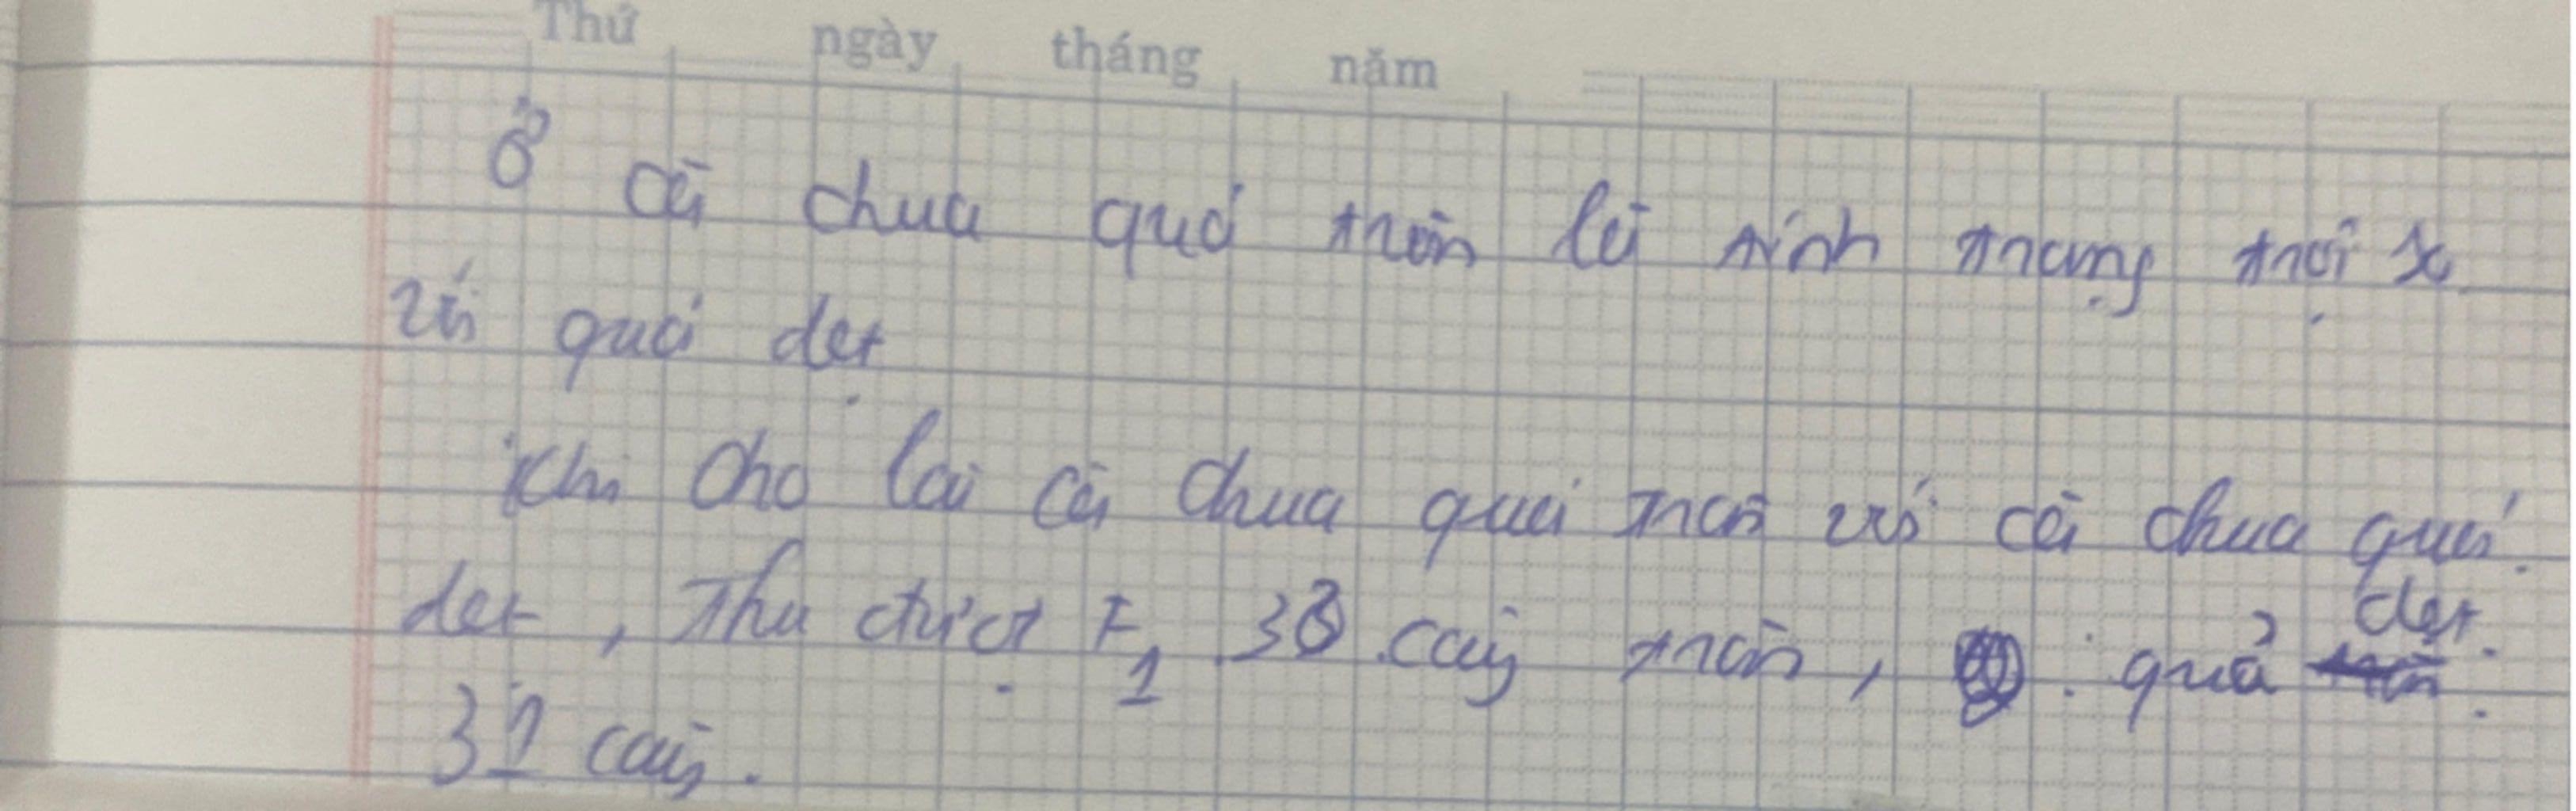 Thứ ngày tháng năm
Ở cà chua quả tròn là tính trạng trội so
với quả dẹt
Khi cho lai cà chua quả tròn với cà chua quả
dẹt, Thu được F1 38 cây tròn, quả dẹt
31 cây.